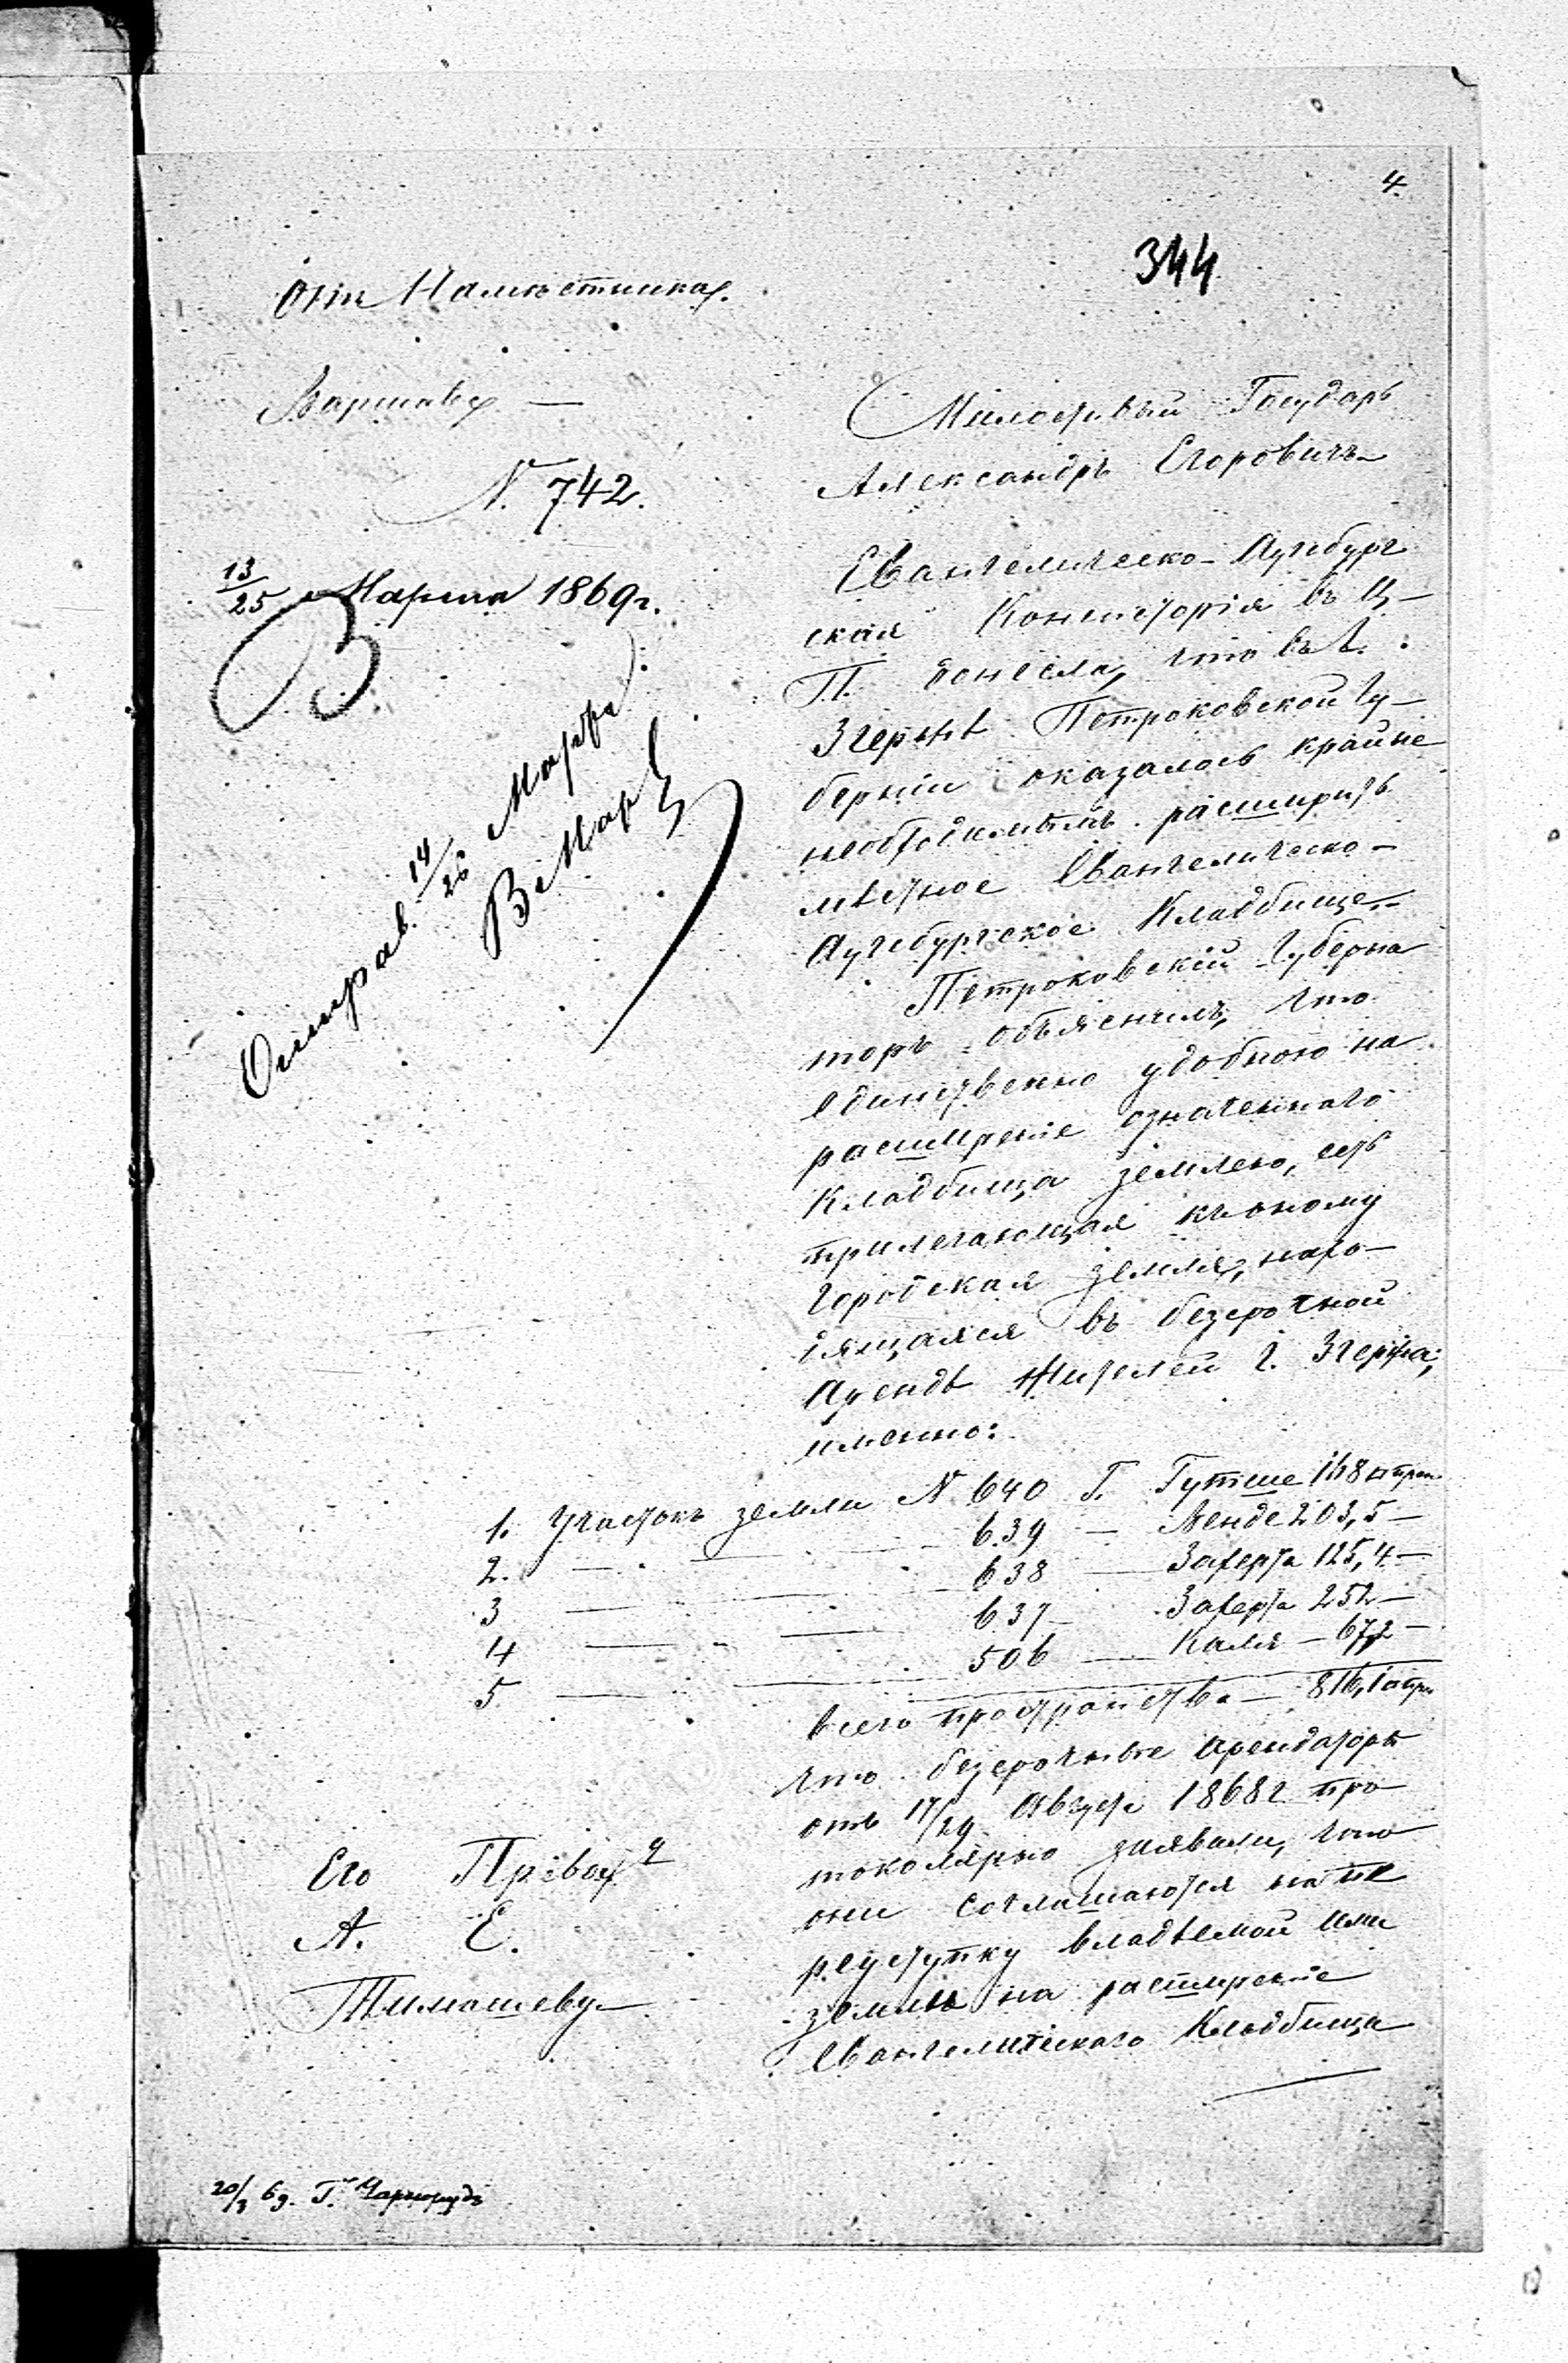 4.
344
Отъ Намѣстника.
Варшава —
N. 742.
13/25 Марта 1869 г.
Отправ. 14/26 Марта
Милостивый Государь
Александръ Егоровичъ
Евангелическо-Аугсбург
ская Консисторія въ Ц-
П. донесла, что въ г.
Згержѣ Петроковской Гу-
берніи оказалось крайне
необходимымъ расширить
мѣстное Евангелическо-
Аугсбургское Кладбище.
Петроковскій Губерна
торъ объяснилъ, что
единственно удобною на
расширеніе означеннаго
Кладбища землею, есть
прилегающая къ оному
Городская земля, нахо-
дящаяся въ безсрочной
Арендѣ жителей г. Згержа,
именно:
1. Участокъ земли N 640 Г. Гутше 168 □ прен.
2. — 639 — Ленде 203,5 —
3 — 638 — Захерта 125,4 —
4 — 637 — Захерта 252 —
5 — 506 — Каля — 67,2 —
всего пространства — 816,1 □ пр.
что безсрочные Арендаторы
отъ 17/29 Августа 1868 г. про-
токолярно заявили, что
они соглашаются на пе
реуступку владѣемой ими
земли на расширеніе
Евангелическаго Кладбища
Его Прев
А. Е.
Тимашеву
20/3 69. Г.